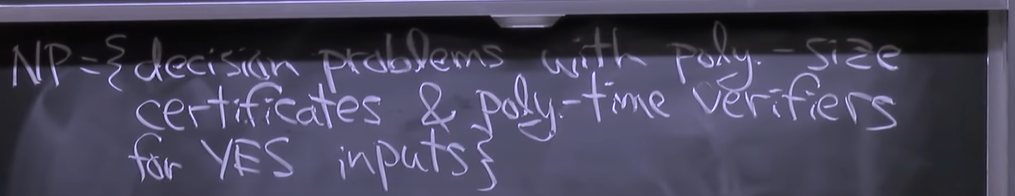 NP={decision problems with poly.-size
certificates & poly.-time verifiers
for YES inputs}